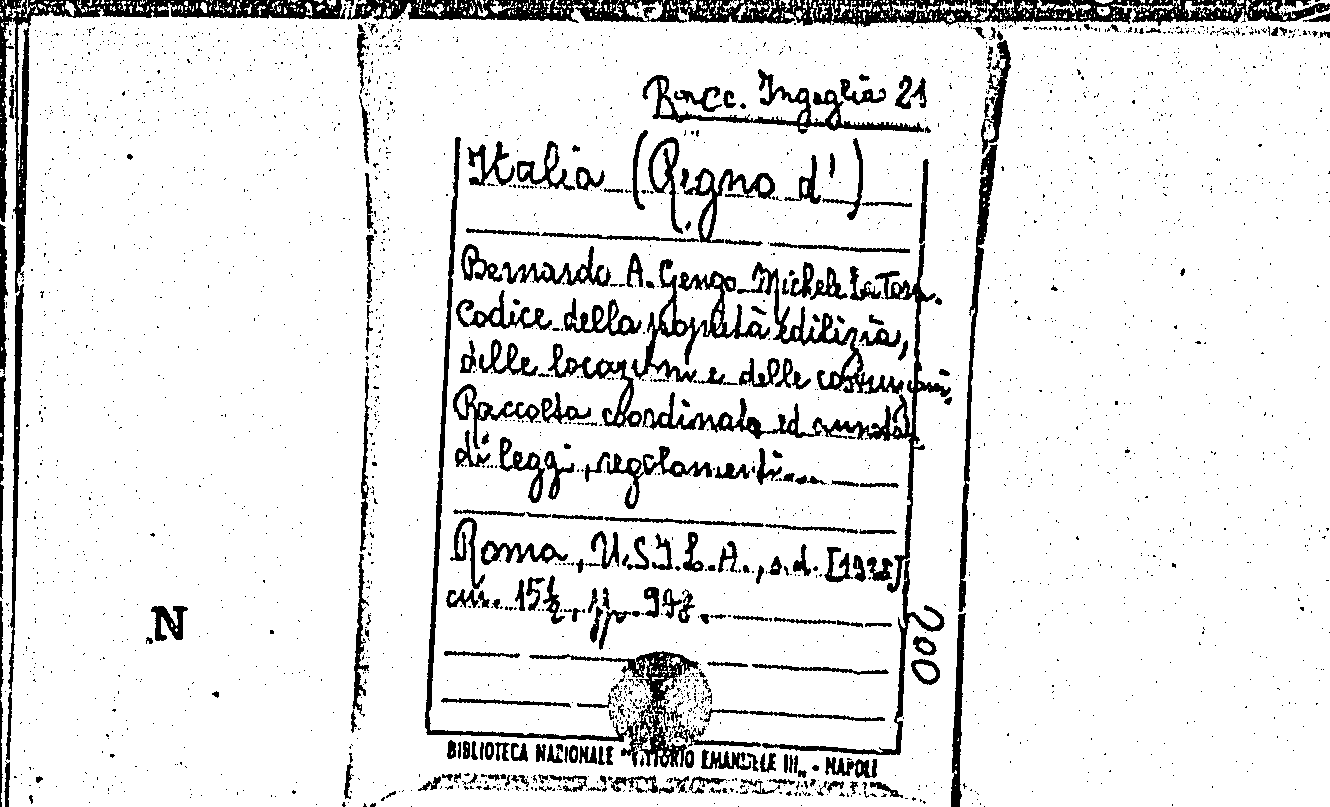 Racc. Ingeglia 21
Italia (Regno d')
Bernardo A. Genga Michele La Torre.
Codice della propietà edilizia,
delle locazioni e delle costruzioni.
Raccolta coordinata ed annotata
di leggi, regolamenti....
Roma, U.S.I.L.A., s.d. [1928]
cm. 15½, pp.
200
N
BIBLIOTECA NAZIONALE "VITTORIO EMANUELE III" - NAPOLI